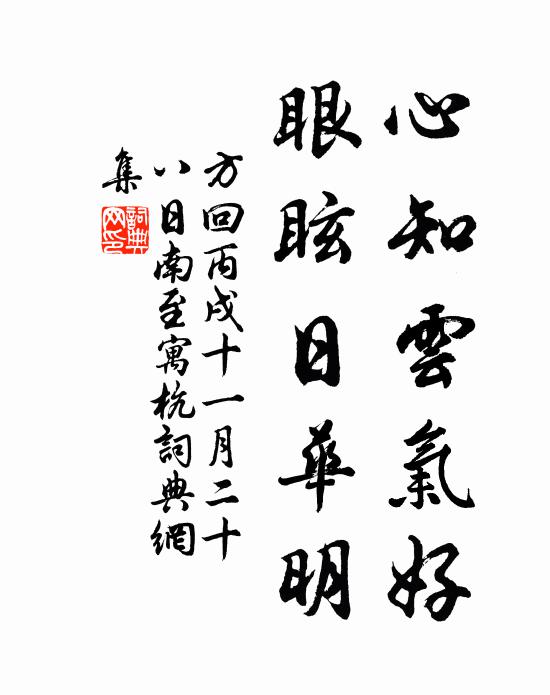 心知雲氣好
眼眩日華明
方回丙戌十一月二十
八日南至寓杭詞典網
集
詞典
网印